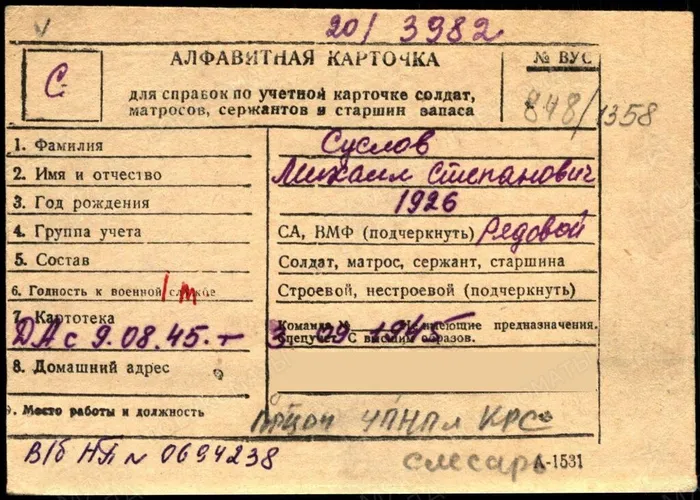 20/ 3982
АЛФАВИТНАЯ КАРТОЧКА
№ ВУС
С
для справок по учетной карточке солдат,
матросов, сержантов и старшин запаса
848/1358
1. Фамилия Суслов
2. Имя и отчество Михаил Степанович
3. Год рождения 1926
4. Группа учета СА, ВМФ (подчеркнуть) Рядовой
5. Состав Солдат, матрос, сержант, старшина
6. Годность к военной службе Строевой, нестроевой (подчеркнуть)
7. Картотека Команда № имеющие предназначения.
Спецучет. С высшим образов.
ДА с 9.08.45. – 3. 09 1945
8. Домашний адрес
9. Место работы и должность КРС
В/б НП № 0694238
слесарь
А-1531